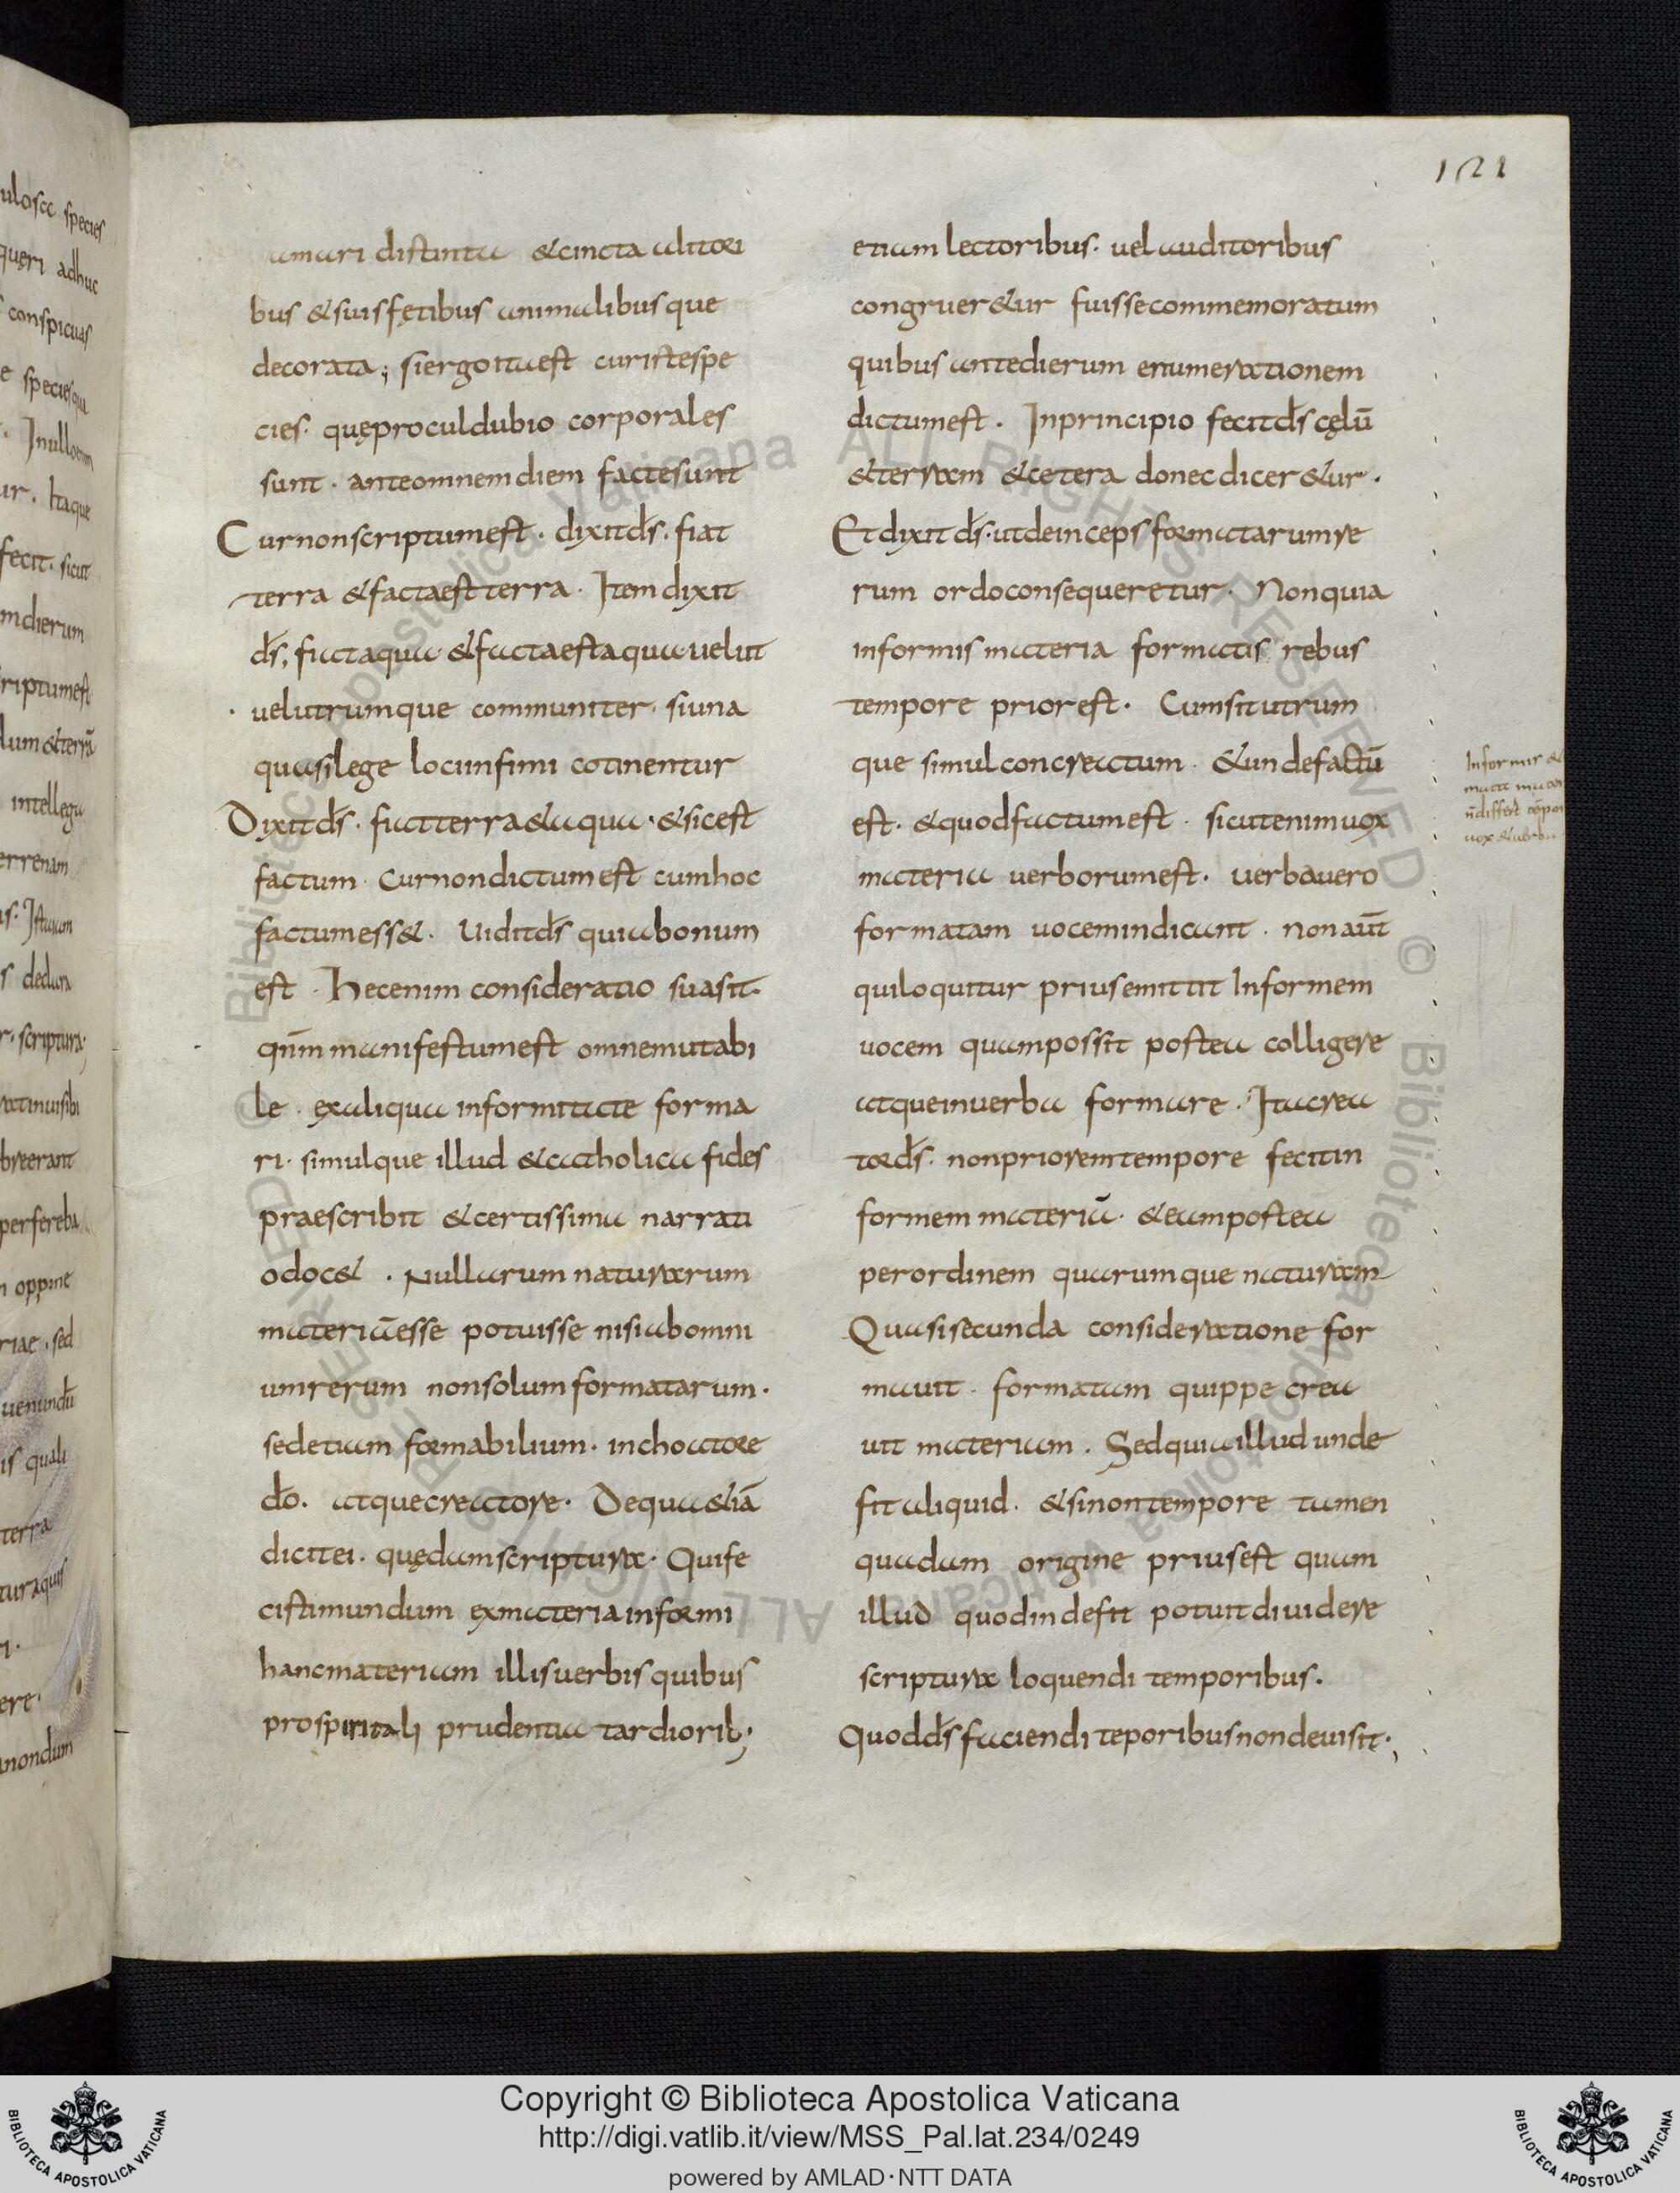 121
amari distinta & cincta alitori
bus & suis fętibus animalibusque
decorata; si ergo ita est cur iste spe
cies. quę procul dubio corporales
sunt. ante omnem diem facte sunt
Cur non scriptum est. dixit ds̄. fiat
terra & facta est terra. Item dixit
ds̄, fiat aqua & facta est aqua uelut
uel utrumque communiter. si una
quasi lege loci infimi cotinentur
Dixit ds̄. fiat terra & aqua. & sic est
factum. Cur non dictum est cum hoc
factum ess&. Uidit ds̄ quia bonum
est. Hec enim consideratio suasit.
qnm̄ manifestum est omne mutabi
le. ex aliqua informitate forma
ri. simulque illud & catholica fides
praescribit & certissima narrati
o doc&. Nullarum naturarum
materiā esse potuisse nisi ab omni
um rerum non solum formatarum.
sed etiam formabilium. inchoatore
dō. atque creatore. De qua & iā
dicit ei. quędam scriptura. Qui fe
cisti mundum ex materia informi
hanc materiam illis uerbis quibus
pro spiritali prudentia tardiorib;
etiam lectoribus. uel auditoribus
congruer&ur fuisse commemoratum
quibus ante dierum enumerationem
dictum est. In principio fecit ds̄ cęlū
& terram & cetera donec dicer&ur.
Et dixit ds̄. ut deinceps formatarum re
rum ordo consequeretur. Non quia
informis materia formatis rebus
tempore prior est. Cum sit utrum
que simul concreatum. & unde factū
est. & quod factum est. sicut enim uox
materia uerborum est. uerba uero
formatam uocem indicant. non aut̄
qui loquitur prius emittit Informem
uocem quam possit postea colligere
atque in uerba formare. Ita crea
tor ds̄. non priorem tempore fecit in
formem materiā. & eam postea
per ordinem quarumque naturam
Quasi secunda consideratione for
mauit. formatam quippe crea
uit materiam. Sed quia illud unde
fit aliquid. & si non tempore tamen
quadam origine prius est quam
illud quod inde fit potuit diuidere
scriptura loquendi temporibus.
Quod ds̄ faciendi teporibus non deuisit.
Copyright © Biblioteca Apostolica Vaticana
http://digi.vatlib.it/view/MSS_Pal.lat.234/0249
powered by AMLAD·NTT DATA
BIBLIOTECA APOSTOLICA VATICANA
BIBLIOTECA APOSTOLICA VATICANA